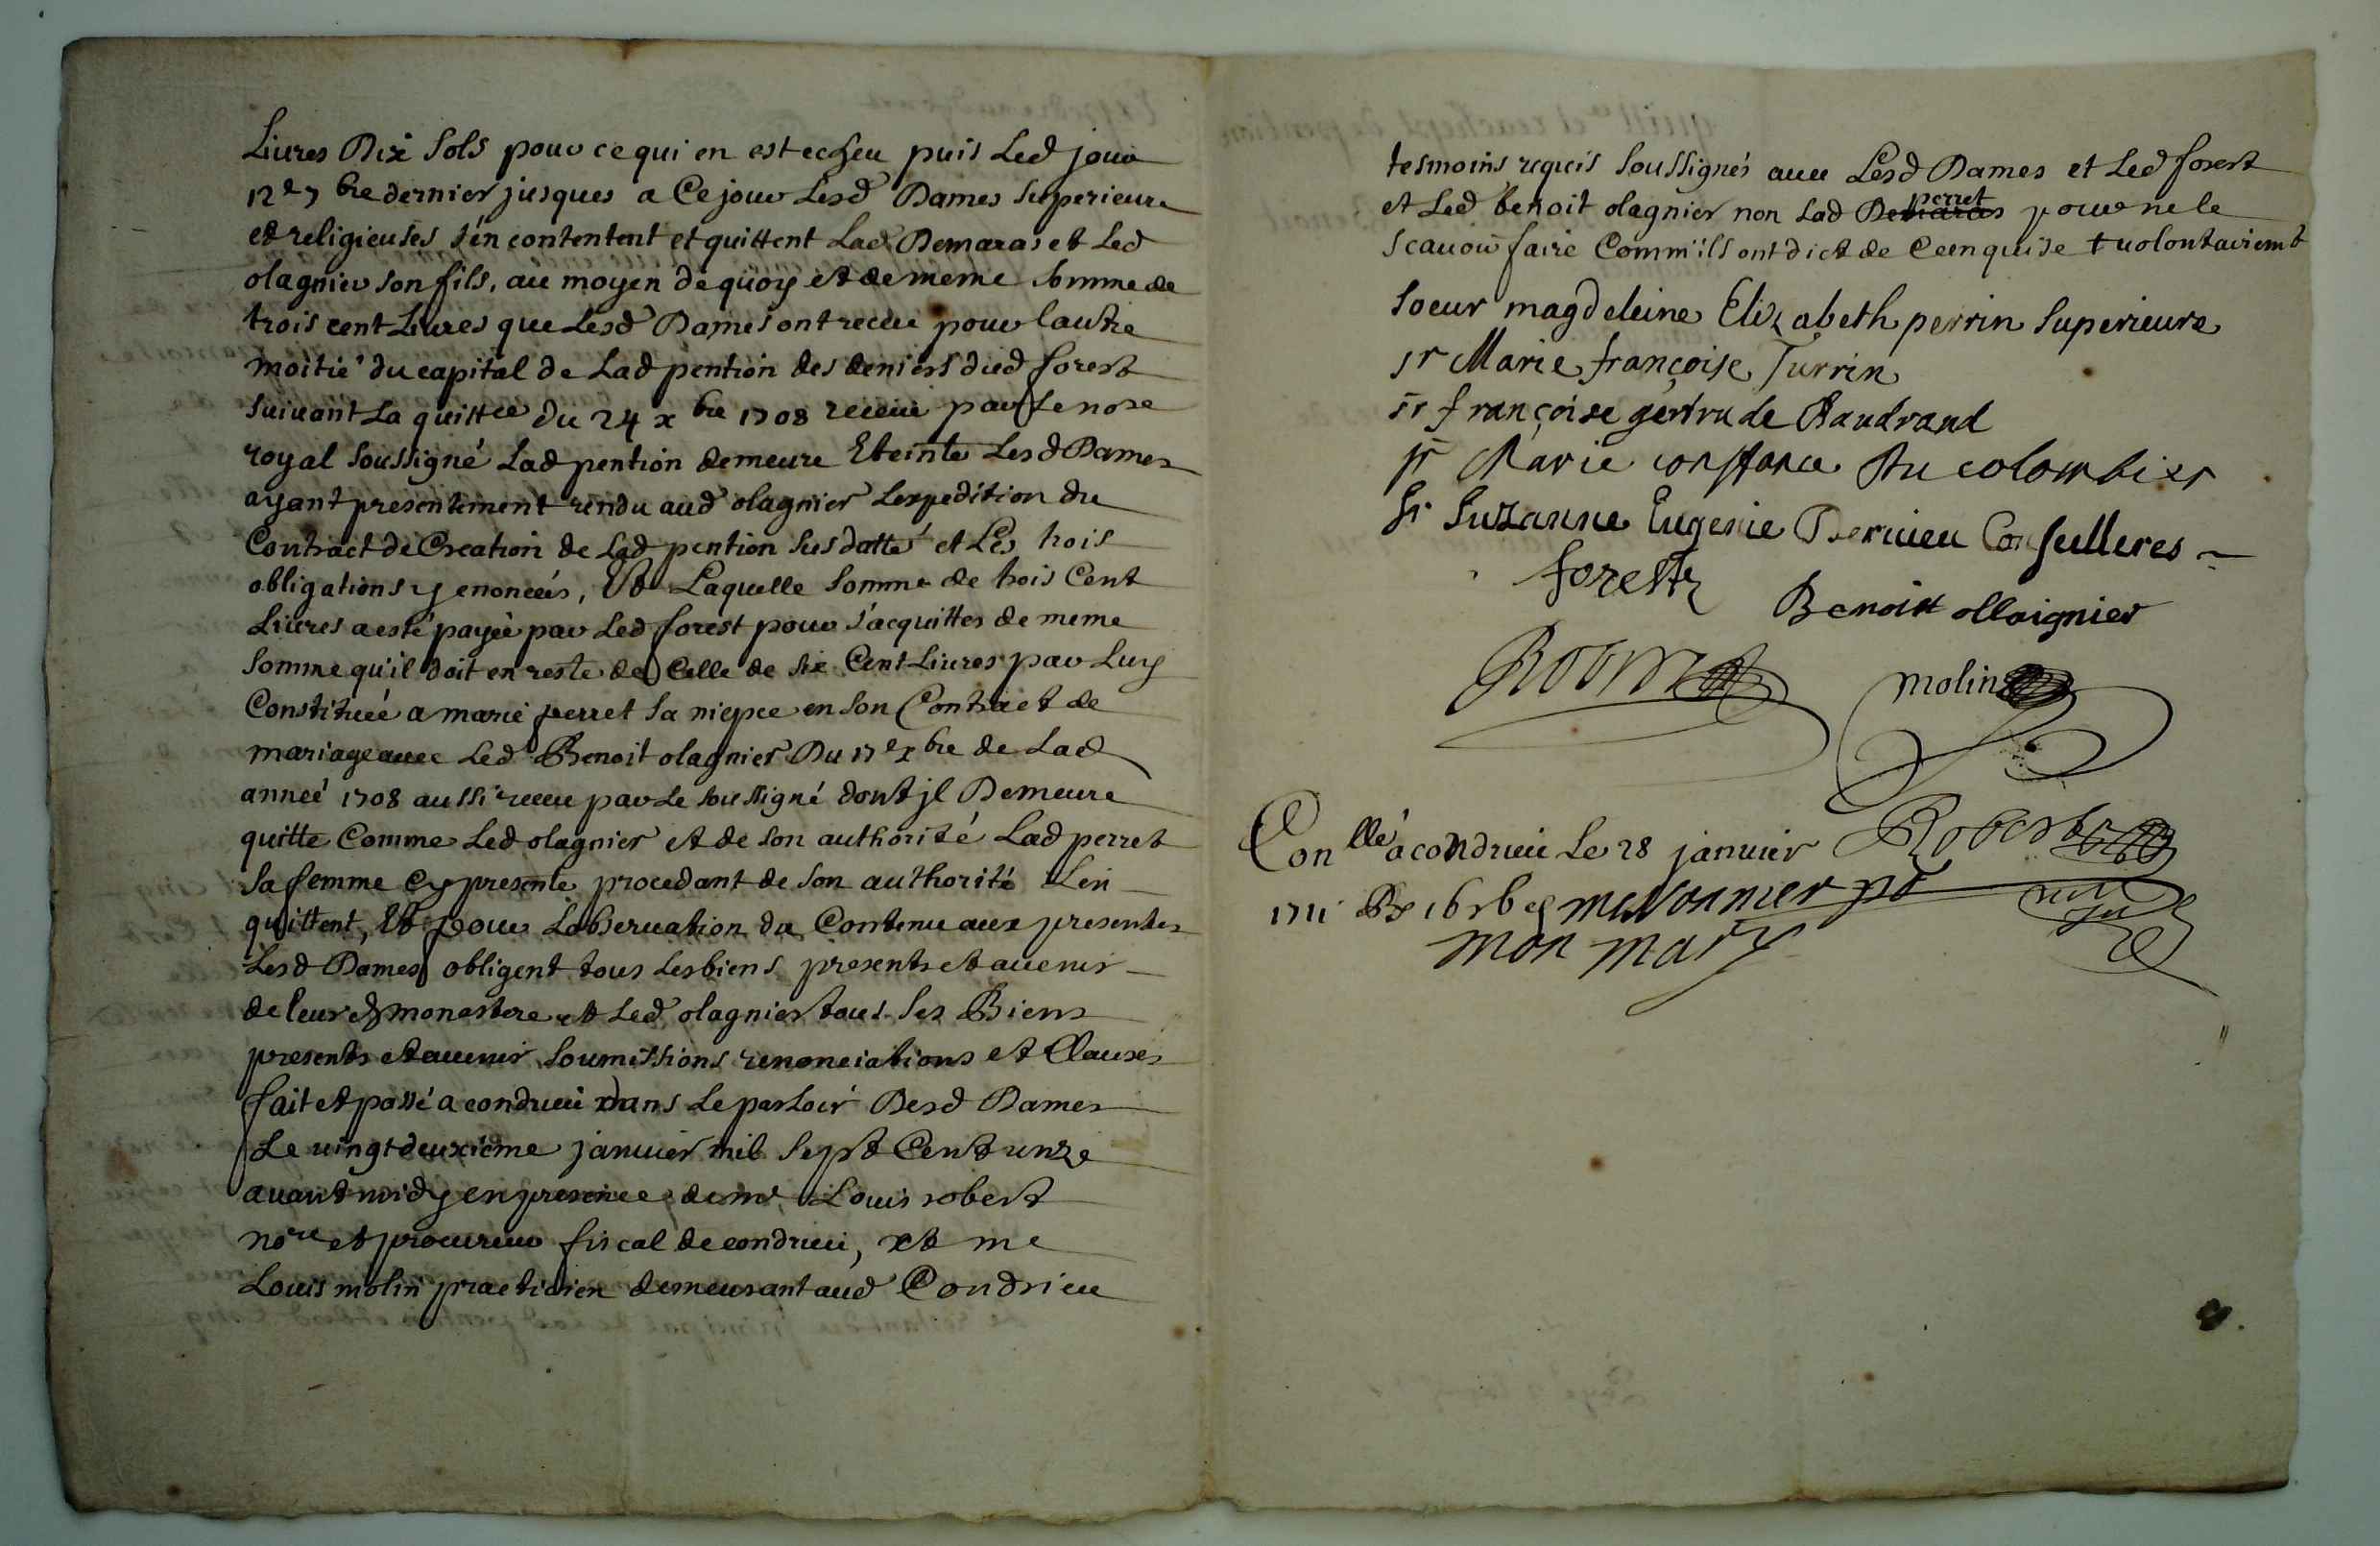 Livres Dix sols pour ce qui en est echeu puis Led jour
12e 7bre dernier jusques a Ce jour Lesd Dames superieure
et religieuses s'en contentent et quittent Lad Demaras et Led
olagnier son fils, au moyen de quoy et de meme somme de
trois cent Livres que Lesd Dames ont receue pour lautre
moitié du capital de Lad pention des deniers dud forest
suivant La quittce du 24 xbre 1708 receue par Le nore
royal soussigné Lad pention demeure Eteinte Lesd Dames
ayant presentement rendu aud olagnier Lexpedition du
Contract de Creation de Lad pention susdatté et Les trois
obligations y enoncées, Et Laquelle somme de trois Cent
Livres a esté payée par Led forest pour s'acquitter de meme
somme qu'il doit en reste de Celle de six Cent Livres par Luy
Constituée a marie perret sa niepce en son Contract de
mariage avec Led Benoit olagnier Du 17e xbre de Lad
année 1708 aussi receu par Le soussigné dont jl Demeure
quitte Comme Led olagnier et de son authorité Lad perret
sa femme cy presente procedant de son authorité Len
quittent, Et pour Lobservation du Contenu aux presentes
Lesd Dames obligent tous Les biens presents et avenir
de leurd monastere et Led olagnier tous ses Biens
presents et avenir soumissions renonciations et Clauses
fait et passé a condrieu dans Le parloir Desd Dames
Le vingt deuxieme janvier mil sept Cent unze
avant midy en presence de me Louis robert
nore et procureur fiscal de condrieu, et me
Louis molin practicien demeurant aud Condrieu
tesmoins requis soussignés avec Lesd Dames et Led forest
et Led benoit olagnier non Lad Demaras perret pour ne le
scavoir faire Comm'ils ont dict de Ce enquise t volontairemt
soeur magdeleine Elizabeth perrin superieure
sr Marie françoise Turrin
sr françoise gertrude Baudrand
sr Marie constance Du colombier
sr Suzanne Eugenie Bervieu Conseilleres
forest
Benoit ollaignier
Robert
molin
Conllé a condrieu Le 28 janvier Robert
1711 messonnier pr
mon mary